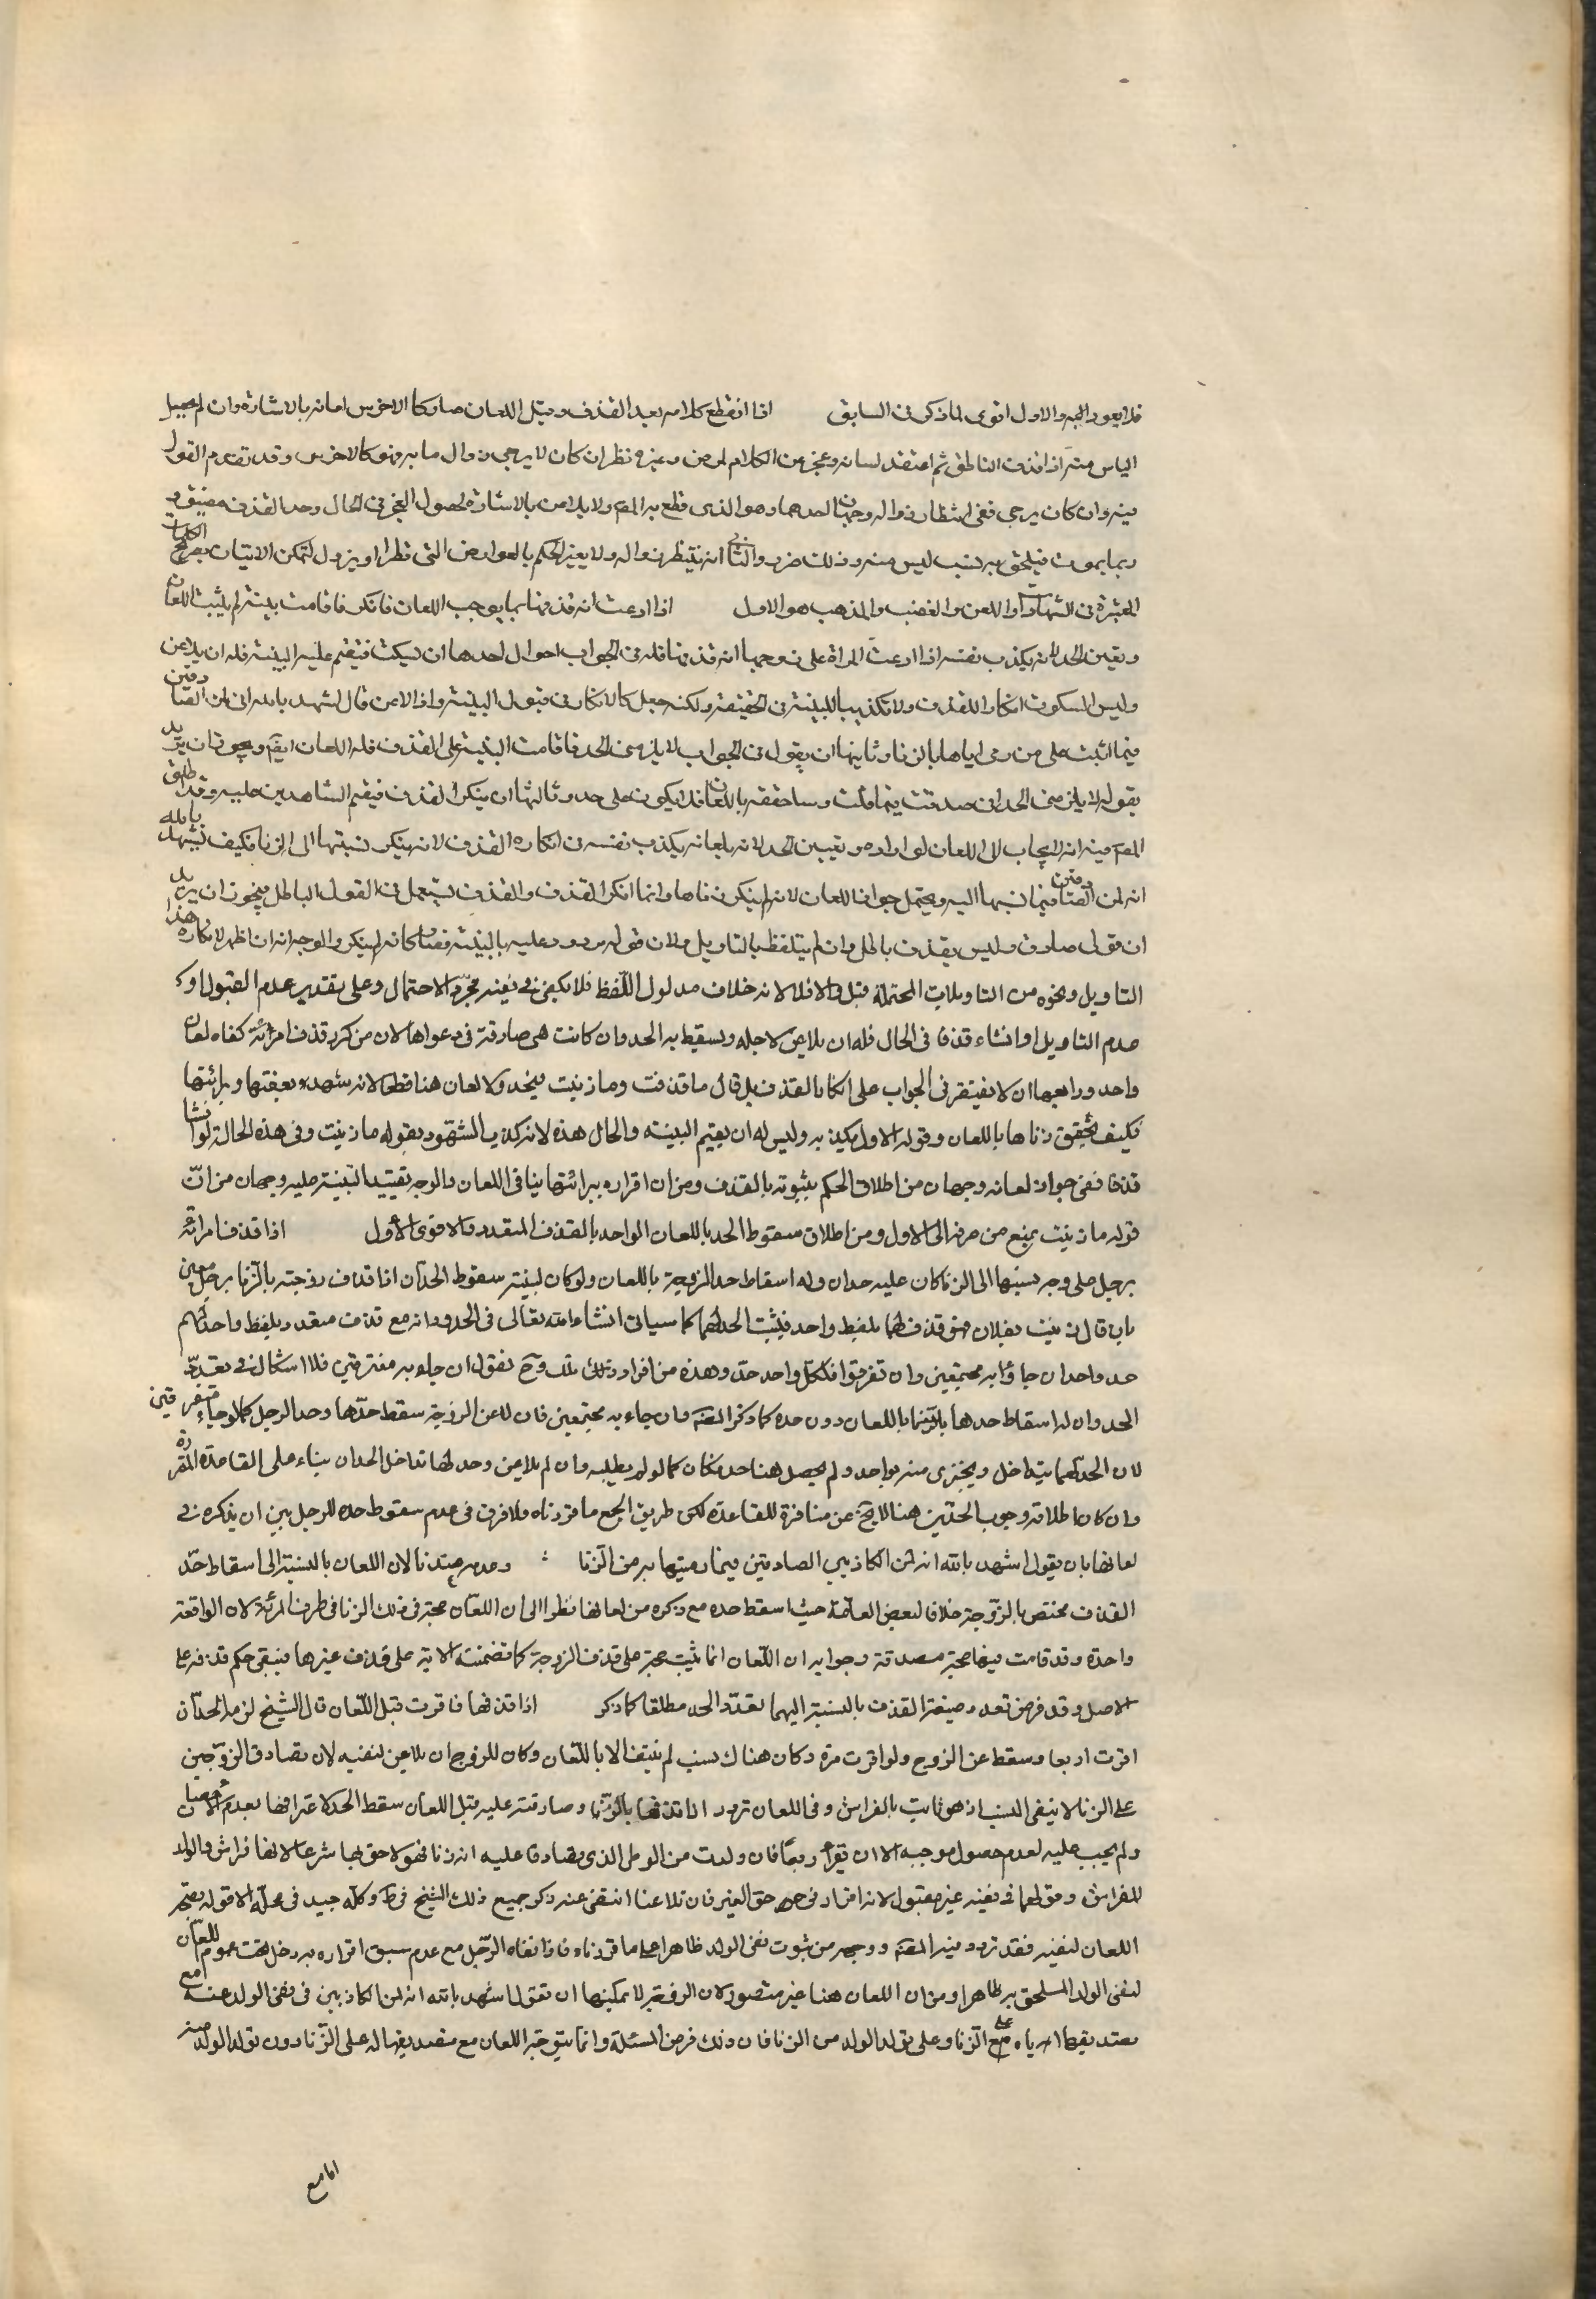 فلا يعود اليه والاول اقوى لما ذكر فى السابق اذا انقطع كلامه بعد القذف وقبل اللعان صار كالاخرس لعانه بالاشارة وان لم يحصل
الياس منه اذا قذف الناطق ثم اعتقل لسانه وعجز عن الكلام لمرض وغيره نظر ان كان لا يرجى زوال ما به فهو كالاخرس وقد تقدم القول
فيه وان كان يرجى ففى انتظار زواله وجهان احدهما وهو الذى قطع به المص ولا يلاعن بالاشارة لحصول العجز فى الحال وحد القذف مضيق و
ربما يموت فيلحق به نسب ليس منه وذلك ضرر والثانى انه ينتظر زواله ولا يغير الحكم بالعوارض التى تطرا او يزول لتمكن الاتيان بصريح الكلمات
المعتبرة فى الشهادات واللعن والغضب والمذهب هو الاول اذا ادعت انه قذفها بما يوجب اللعان فانكر فاقامت بينة لم يثبت اللعان
وتعين الحد لانه يكذب نفسه اذا ادعت المراة على زوجها انه قذفها فله فى الجواب احوال احدها ان يسكت فتقيم عليه البينة فله ان يلاعن
وليس السكوت انكارا للقذف ولا تكذيبا للبينة فى الحقيقة ولكنه جعل كالانكار فى قبول البينة واذا لاعن قال اشهد بالله انى لمن الصادقين
فيما اثبت على من رمى اياها بالزنا وثانيها ان يقول فى الجواب لا يلزمنى الحد فاقامت البينة على القذف فله اللعان ايضا ويجوز ان يريد
بقوله لا يلزمنى الحد انى صدقت فيما قلت وساحققه باللعان فلا يكون على حد وثالثها ان ينكر القذف فيقيم الشاهدين عليه وقد اطلق
المص فيه انه لا يجاب الى اللعان لو اراده وتعيين الحد لانه بلعانه يكذب نفسه فى انكاره القذف لانه ينكر نسبتها الى الزنا فكيف يشهد بالله
انه لمن الصادقين فيما نسبها اليه ويحتمل جواز اللعان لانه لم ينكر زناها وانما انكر القذف والقذف يستعمل فى القول الباطل فيجوز ان يريد
ان قولى صادق وليس بقذف باطل وان لم يتلفظ بالتاويل ولان قوله مردود عليه بالبينة فصار كانه لم ينكر والوجه انه ان اظهر لانكاره هذا
التاويل ونحوه من التاويلات المحتملة قبل والا فلا لانه خلاف مدلول اللفظ فلا يكفى فى نفيه مجرد الاحتمال وعلى تقدير عدم القبول او
عدم التاويل او انشاء قذفا فى الحال فله ان يلاعن لاجله ويسقط به الحد وان كانت هى صادقة فى دعواها لان من كرر قذف امرأته كفاه لعان
واحد ورابعها ان لا يقتصر فى الجواب على انكار القذف بل قال ما قذفت وما زنيت فيحد ولا لعان هنا قطعا لانه شهد بعفتها وبرائتها
فكيف يحقق زناها باللعان وقوله الاول يكذبه وليس له ان يقيم البينة والحال هذه لانه كذب الشهود بقوله ما زنيت وفى هذه الحالة لو انشا
قذفا ففى جواز لعانه وجهان من اطلاق الحكم بثبوته بالقذف ومن ان اقراره ببرائتها ينافى اللعان والوجه تقييد البينة عليه وجهان من ان
قوله ما زنيت يمنع من صرفه الى الاول ومن اطلاق سقوط الحد باللعان الواحد بالقذف المتعدد والاقوى الاول اذا قذف امراته
برجل على وجه نسبها الى الزنا كان عليه حدان وله اسقاط حد الزوجة باللعان ولو كان ببينة سقوط الحدان اذا قذف زوجته بالزنا برجل معين
بان قال زنيت بفلان فهو قذف لهما بلفظ واحد فيثبت الحد لهما كما سياتى انشاء الله تعالى فى الحدود انه مع قذف متعدد بلفظ واحد لهم
حد واحد ان جاؤا به مجتمعين وان تفرقوا فلكل واحد حد وهذه من افراد ذلك وح نقول ان جاءوا به مفترقين فلا اشكال فى تعدد
الحد وان له اسقاط حدها باللعان دون حده كما ذكر المص وان جاء به مجتمعين فان لاعن الزوجة سقط حدها وحد الرجل كما لو جاء متفرقين
لان الحد لهما يتداخل ويجتزى منه بواحد ولم يحصل هنا حد فكان كما لو لم يطلبه وان لم يلاعن وحد لها تداخل الحدان بناء على القاعدة المقررة
وان كان اطلاقه وجوب الحدين هنا لا يخ عن منافرة للقاعدة لكن طريق الجمع ما قررناه ولا فرق فى عدم سقوط حده للرجل بين ان يذكره فى
لعانها بان يقول اشهد بالله انه لمن الصادقين فيما رميتها به من الزنا وعدمه عندنا لان اللعان بالنسبة الى اسقاط حد
القذف مختص بالزوجة خلافا لبعض العامة حيث اسقط حده مع ذكره من لعانها نظرا الى ان اللعان حجة فى ذلك الزنا فى طرف المرئة لان الواقعة
واحدة وقد قامت فيها حجة مصدقة وجوابه ان اللعان انما يثبت حجة على قذف الزوجة كما تضمنته الاية على قذف غيرها فيبقى حكم قذفه على
الاصل وقد فرض تعدد صيغة القذف بالنسبة اليهما تعدد الحد مطلقا كما ذكر اذا قذفها فاقرت قبل اللعان قال الشيخ لزمها الحد ان
اقرت اربعا وسقط عن الزوج ولو اقرت مرة وكان هناك نسب لم ينتف الا باللعان وكان للزوج ان يلاعن لنفيه لان تصادق الزوجين
على الزنا لا ينفى النسب اذ هو ثابت بالفراش وفى اللعان تردد اذا قذفها بالزنا وصادقته عليه قبل اللعان سقط الحد لاعترافها بعدم الاحصان
ولم يجب عليه لعدم حصول موجبه الا ان تقر اربعا فان ولدت من الوطى الذى تصادقا عليه انه زنا فهو لاحق بها شرعا لانها فراش والولد
للفراش وقولهما فى نفيه غير مقبول لانه اقرار فى حق الغير فان تلاعنا انتفى عنه ذكر جميع ذلك الشيخ فى ط وكله جيد فى محله الا قوله بصحة
اللعان لنفيه فقد تردد فيه المص ووجهه من ثبوت نفى الولد ظاهرا على ما قررناه فاذا نفاه الرجل مع عدم سبق اقراره به دخل تحت عموم اللعان
لنفى الولد الملحق به ظاهرا ومن ان اللعان هنا غير متصور لان الزوجة لا يمكنها ان تقول اشهد بالله انه لمن الكاذبين فى نفى الولد عنه مع
تصديقها اياه على الزنا وعلى تولد الولد من الزنا فان ذلك فرض المسئلة وانما يتوجه اللعان مع تصديقها له على الزنا دون تولد الولد منه
اما مع